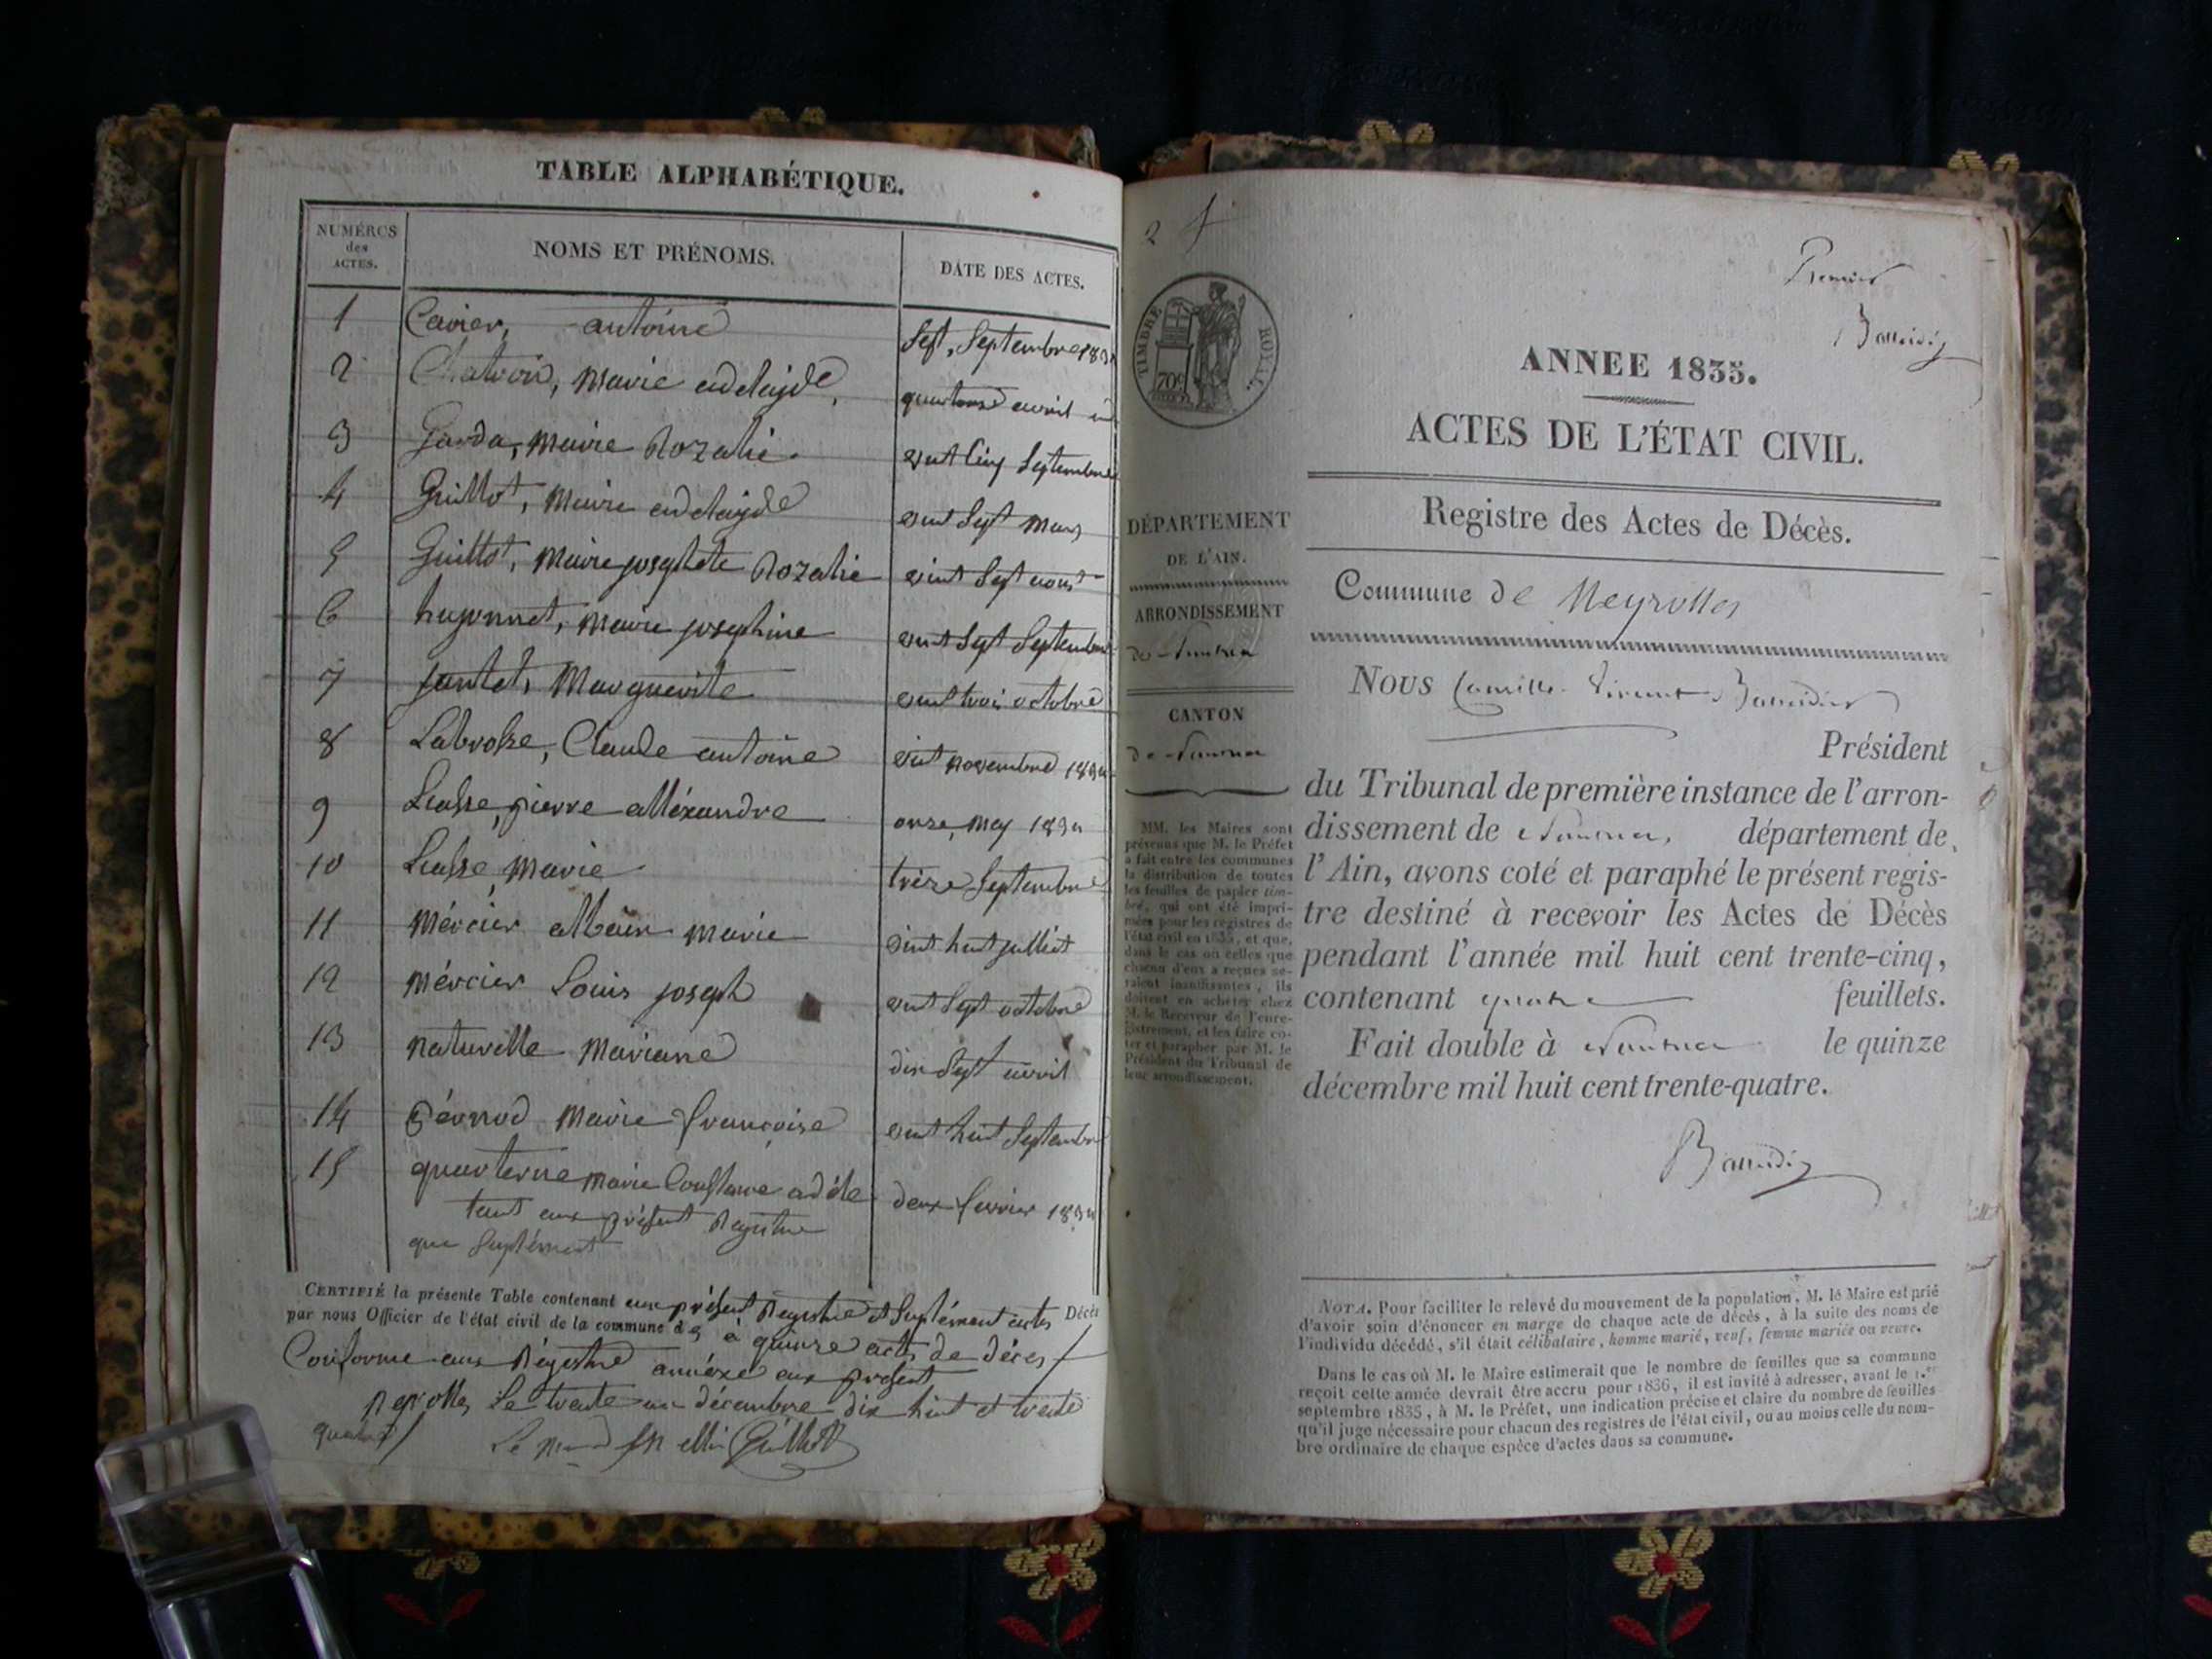 TABLE ALPHABÉTIQUE.
NUMÉROS des ACTES. NOMS ET PRÉNOMS. DATE DES ACTES.
1 Cavier, antoine Sept, Septembre
2 Chatron, marie adelayde, quatorse avril
3 Garda, marie Rozalie. vent Cinq Septembre
4 Guillot, marie adelayde vent Sept mars
5 Guillot, marie josephete Rozalie vint Sept aoust
6 hugonnet, marie josephine vent Sept Septembre
7 jantet, Marguerite vent trois octobre
8 Labrosse, Claude antoine vint novembre
9 Liasse, pierre alléxandre onze, may
10 Liasse, marie trèze Septembre
11 mércier albain marie vint huit julliet
12 mércier Louis joseph vent Sept octobre
13 naturelle mariane dix Sept avril
14 Pérnod marie françoise vent huit Septembre
15 quarterne marie Constance adéle deux fevrier
tant aux présent Registre
que Suplément
CERTIFIÉ la présente Table contenant aux présent Registre et Suplément Décès
par nous Officier de l'état civil de la commune de à quinze acts de déces
Conforme aux Régistre annéxé aux présent
neyrolles, Le trente un décembre dix huit et trente
quatre
Guillot
2
Premier
TIMBRE ROYAL.
70c
ANNEE 1835.
ACTES DE L'ÉTAT CIVIL.
Registre des Actes de Décès.
Commune de Neyrolles
DÉPARTEMENT
DE L'AIN.
ARRONDISSEMENT
de Nantua
CANTON
de Nantua
MM. les Maires sont
prévenus que M. le Préfet
a fait entre les communes
la distribution de toutes
les feuilles de papier tim-
bré, qui ont été impri-
mées pour les registres de
l'état civil en 1835, et que,
dans le cas où celles que
chacun d'eux a reçues se-
raient insuffisantes, ils
doivent en acheter chez
M. le Receveur de l'enre-
gistrement, et les faire co-
ter et parapher par M. le
Président du Tribunal de
leur arrondissement.
NOUS Camille Vincent
Président
du Tribunal de première instance de l'arron-
dissement de Nantua, département de
l'Ain, avons coté et paraphé le présent regis-
tre destiné à recevoir les Actes de Décès
pendant l'année mil huit cent trente-cinq,
contenant quatre feuillets.
Fait double à Nantua le quinze
décembre mil huit cent trente-quatre.
NOTA. Pour faciliter le relevé du mouvement de la population, M. le Maire est prié
d'avoir soin d'énoncer en marge de chaque acte de décès, à la suite des noms de
l'individu décédé, s'il était célibataire, homme marié, veuf, femme mariée ou veuve.
Dans le cas où M. le Maire estimerait que le nombre de feuilles que sa commune
reçoit cette année devrait être accru pour 1836, il est invité à adresser, avant le 1.er
septembre 1835, à M. le Préfet, une indication précise et claire du nombre de feuilles
qu'il juge nécessaire pour chacun des registres de l'état civil, ou au moins celle du nom-
bre ordinaire de chaque espèce d'actes dans sa commune.